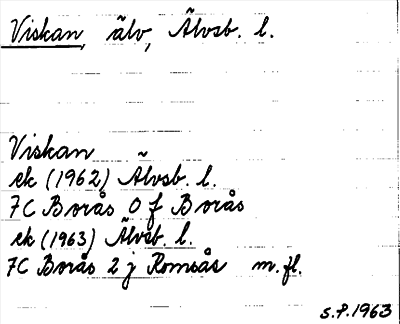 Viskan, älv, Älvsb. l.
Viskan
ek (1962) Älvsb. l.
7C Borås 0 f Borås
ek (1963) Älvsb. l.
7C Borås 2 j Romsås m. fl.
S.P. 1963